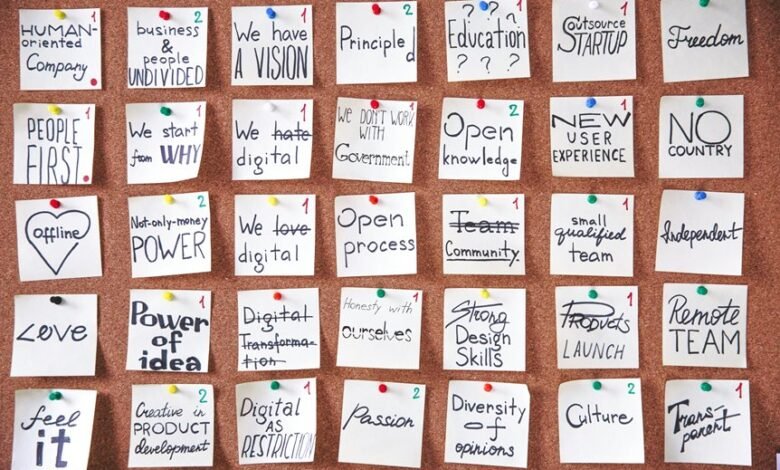 HUMAN-
oriented
Company
2
business
&
people
UNDIVIDED
1
We have
A VISION
2
Principled
1
Education
? ? ? ? ? ?
1
Outsource
STARTUP
Freedom
PEOPLE
FIRST.
1
We start
from WHY
1
We hate
digital
1
WE DON'T WORK
WITH
Government
2
Open
knowledge
1
NEW
USER
EXPERIENCE
NO
COUNTRY
offline
2
Not-only-money
POWER
1
We love
digital
Open
process
1
Team
Community
1
small
qualified
team
Independent
Love
1
Power
of
idea
1
Digital
Transforma-
tion
1
Honesty with
ourselves
Strong
Design
Skills
1
Products
LAUNCH
2
Remote
TEAM
feel
it
2
Creative in
PRODUCT
development
1
Digital
AS
RESTRICTION
2
Passion
Diversity
of
opinions
2
Culture
1
Trans-
parent